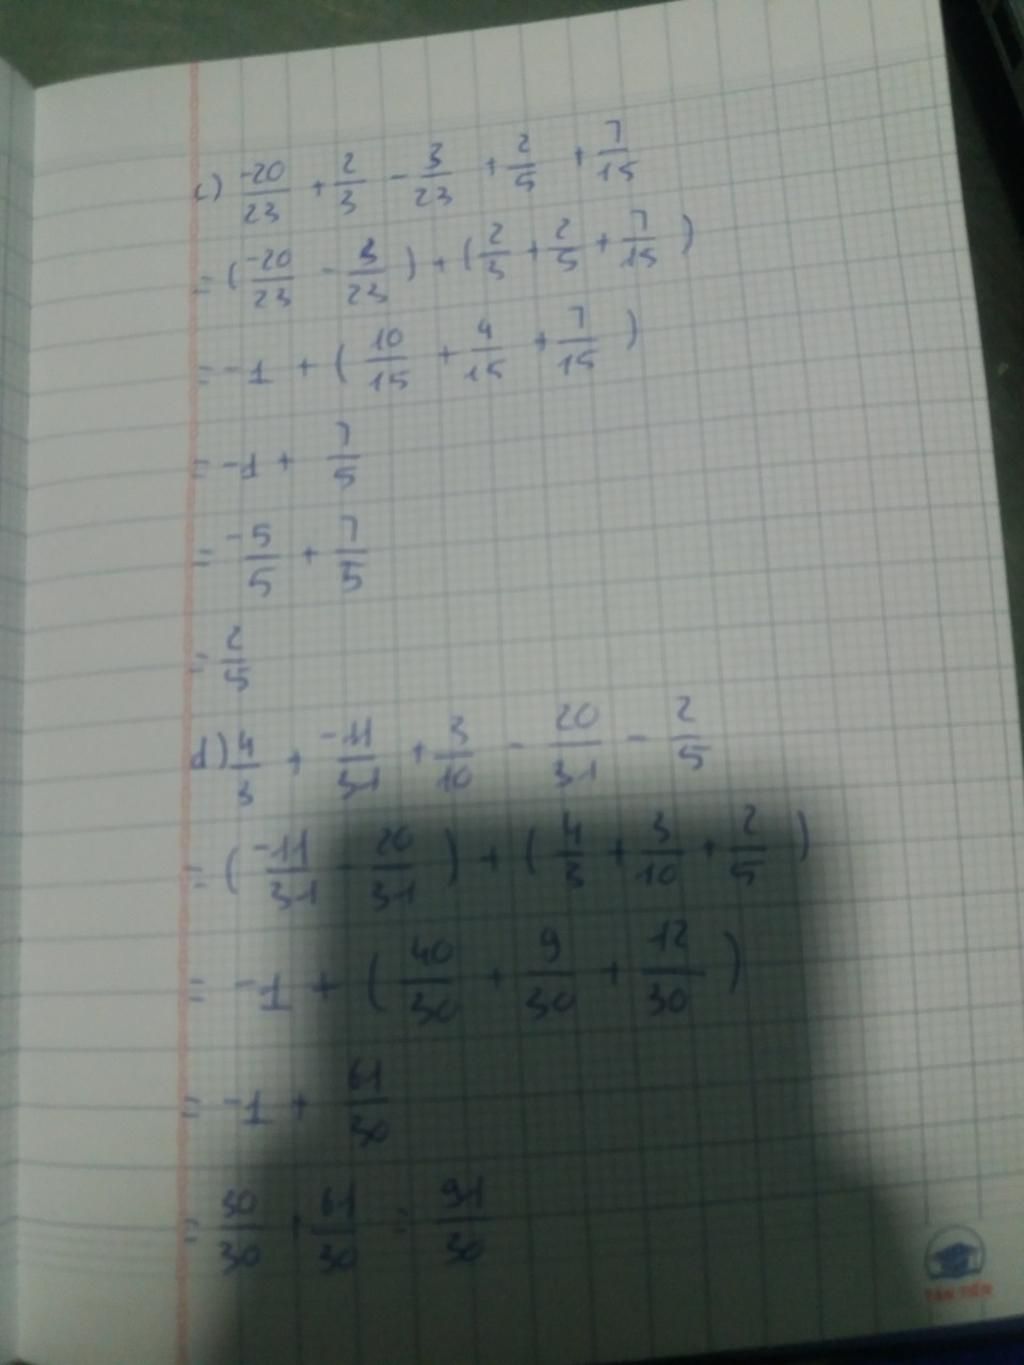 c) -20/23 + 2/3 - 3/23 + 2/5 + 7/15
= (-20/23 - 3/23) + (2/3 + 2/5 + 7/15)
= -1 + (10/15 + 4/15 + 7/15)
= -1 + 7/5
= -5/5 + 7/5
= 2/5
d) 4/3 + -11/31 + 3/10 - 20/31 - 2/5
= (-11/31 - 20/31) + (4/3 + 3/10 + 2/5)
= -1 + (40/30 + 9/30 + 12/30)
= -1 + 61/30
= 30/30 + 61/30 = 91/30
TÂN TIẾN